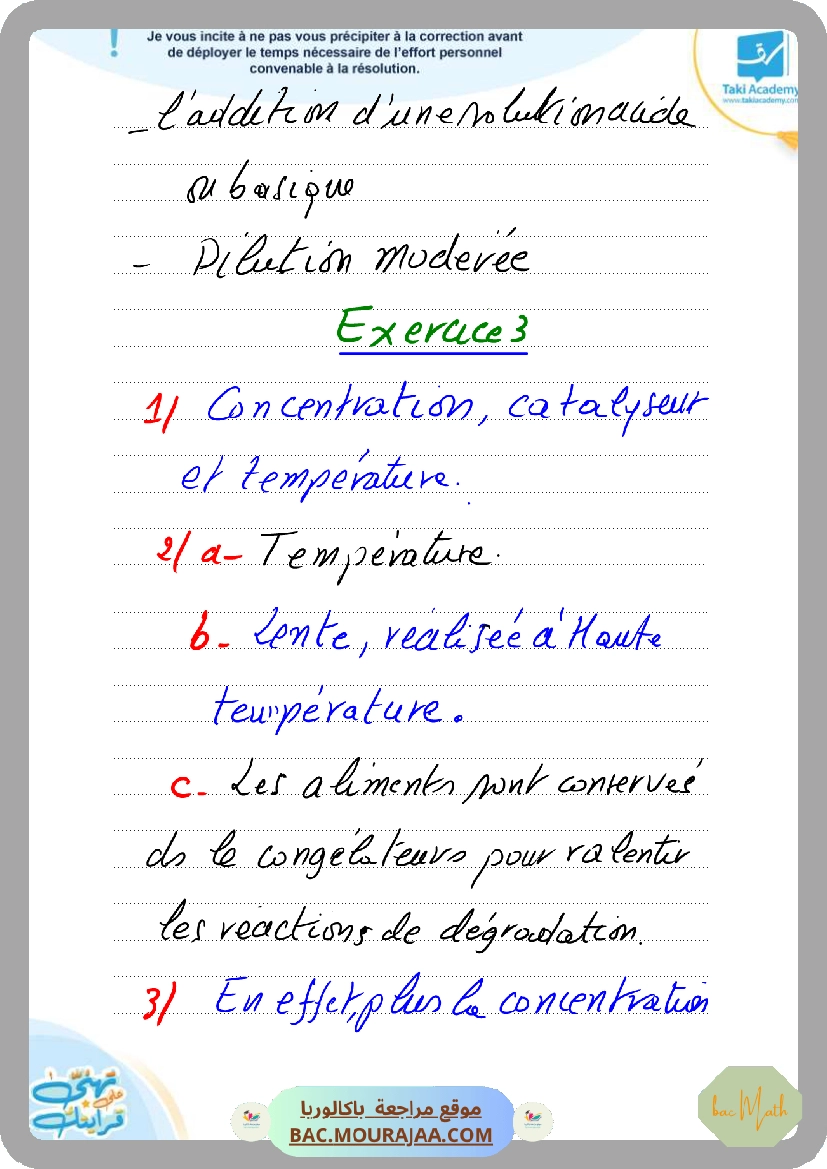 Je vous incite à ne pas vous précipiter à la correction avant
de déployer le temps nécessaire de l'effort personnel
convenable à la résolution.
!
Taki Academy
www.takiacademy.com
- l'addition d'une solution acide
ou basique
- Dilution moderée
Exercice 3
1/ Concentration, catalyseur
et température.
2/ a- Température.
b- Lente, réalisée à Haute
température.
c- Les aliments sont conservés
ds le congélateurs pour ralentir
les réactions de dégradation.
3/ En effet, plus la concentration
موقع مراجعة باكالوريا
BAC.MOURAJAA.COM
bac Math